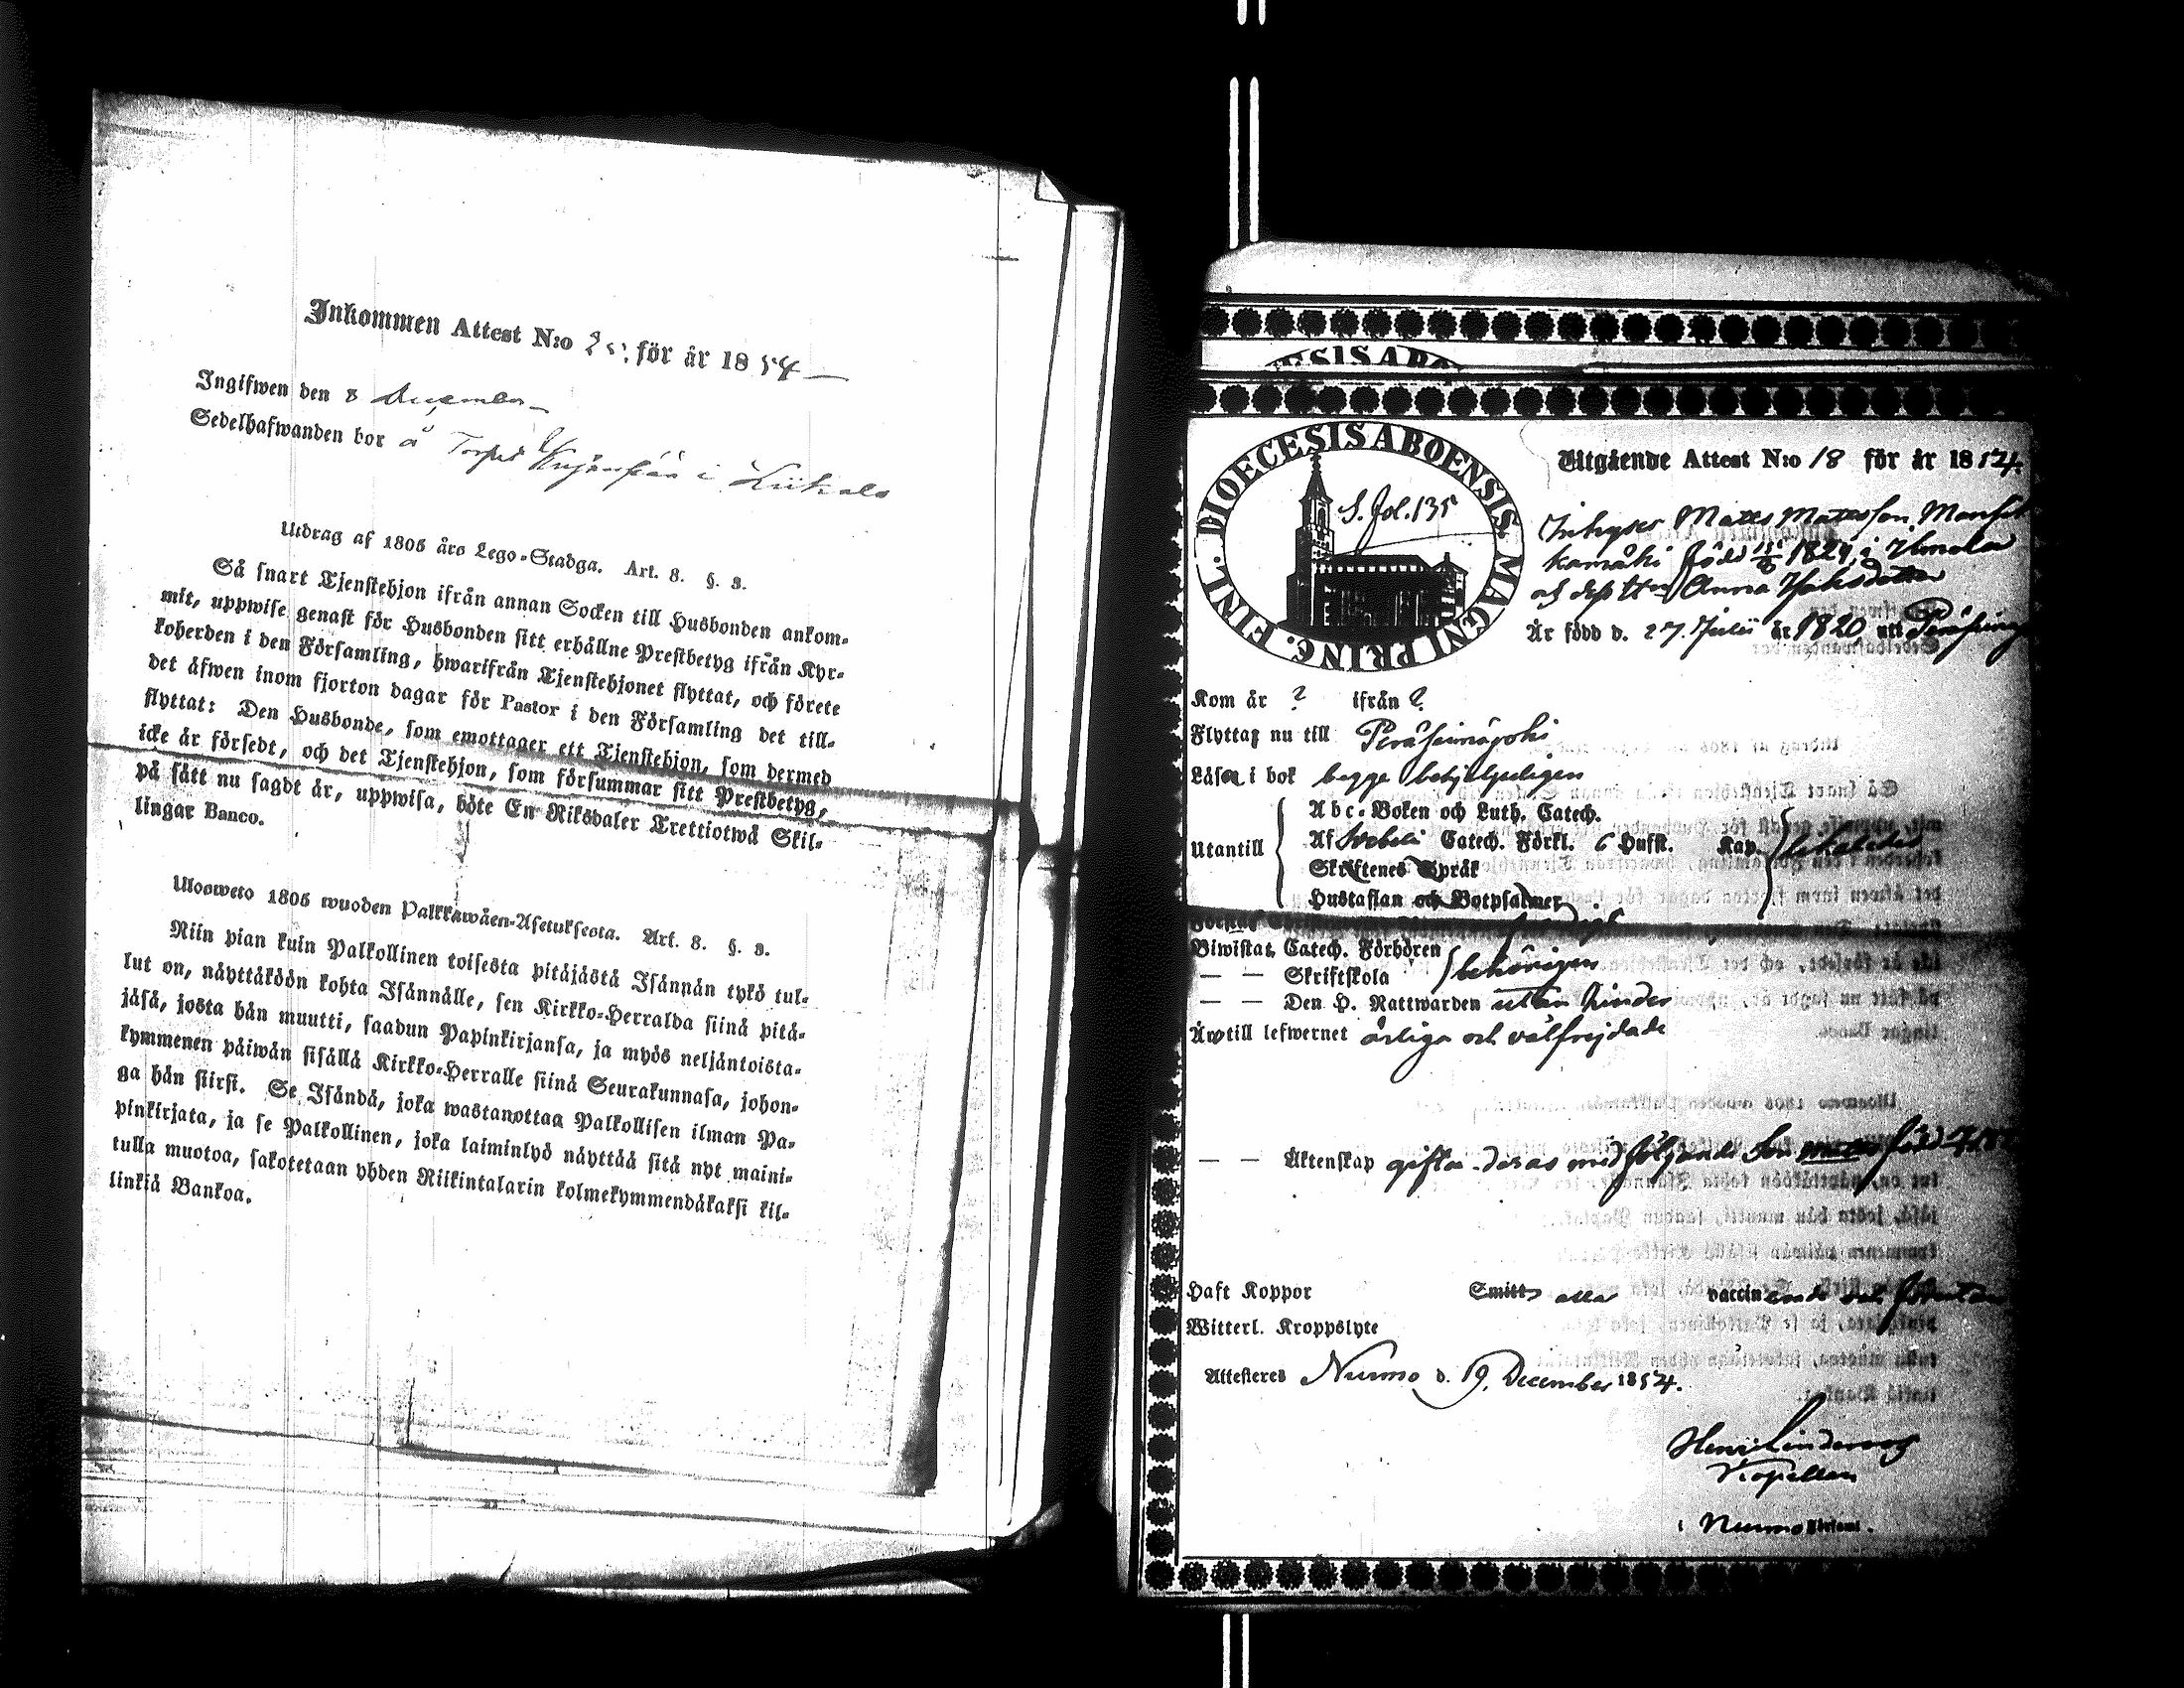 Inkommen Attest N:o för år 1854
Ingifwen den 8 December
Sedelhafwanden bor å Torpet i
Utdrag af 1805 års Lego-Stadga. Art. 8. §. 3.
Så snart Tjenstehjon ifrån annan Socken till Husbonden ankom-
mit, uppwise genast för Husbonden sitt erhållne Prestbetyg ifrån Kyr-
koherden i den Församling, hwarifrån Tjenstehjonet flyttat, och förete
det äfwen inom fjorton dagar för Pastor i den Församling det till-
flyttat: Den Husbonde, som emottager ett Tjenstehjon, som dermed
icke är försedt, och det Tjenstehjon, som försummar sitt Prestbetyg,
på sätt nu sagdt är, uppwisa, böte En Riksdaler Trettiotwå Skil-
lingar Banco.
Ulosweto 1805 wuoden Palkkawäen-Asetuksesta. Art. 8. §. 3.
Niin pian kuin Palkollinen toisesta pitäjästä Isännän tykö tul-
lut on, näyttäköön kohta Isännälle, sen Kirkko-Herralda siinä pitä-
jäsä, josta hän muutti, saadun Papinkirjansa, ja myös neljäntoista-
kymmenen päiwän sisällä Kirkko-Herralle siinä Seurakunnasa, johon-
ga hän siirsi. Se Isändä, joka wastanottaa Palkollisen ilman Pa-
pinkirjata, ja se Palkollinen, joka laiminlyö näyttää sitä nyt maini-
tulla muotoa, sakotetaan yhden Riikintalarin kolmekymmendäkaksi kil-
linkiä Bankoa.
DIOECESIS ABOENSIS MAGNI PRINC. FINL.
S. Fol. 135
Utgående Attest N:o 18 för år 1854.
Inhyses Matts Mattsson
född 1824 i Ilmola
och dess Anna
Är född d. 27. Julii år 1820 uti
Kom år ? ifrån ?
Flyttar nu till Peräseinäjoki
Läsa i bok begge behjelpeligen
Utantill
Abc-Boken och Luth. Catech.
Af Svebeli Catech. Förkl. 6 Hufst. Kap.
Skriftenes Språk
Hustaflan och Botpsalmer
Biwistat Catech. Förhören
— — Skriftskola behörigen
— — Den H. Nattwarden utan hinder
Äro till lefwernet ärliga och välfrejdade
— — Äktenskap gifta. deras medföljande Son född
Haft Koppor Smitt alla vaccinerade
Witterl. Kroppslyte
Attesteres Nurmo d. 19. December 1854.
Kapellan
i Nurmo Församl.